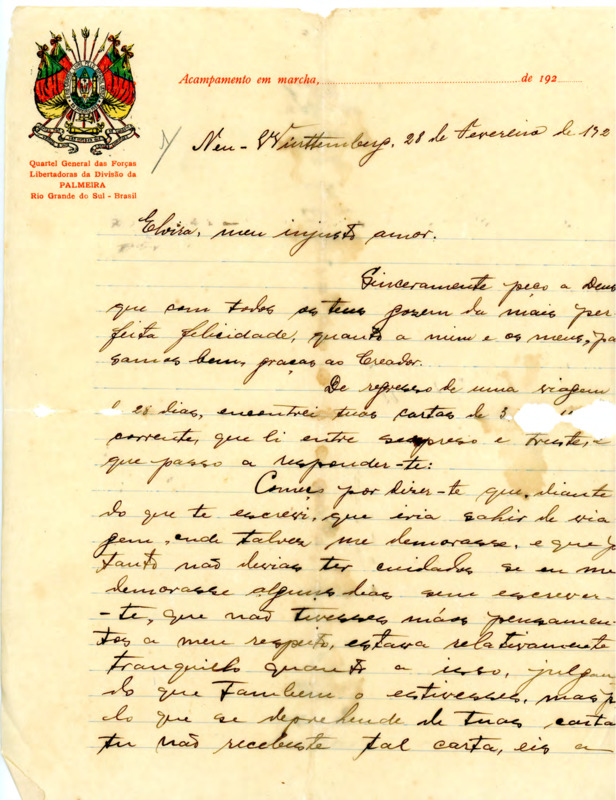 Acampamento em marcha, de 192
Neu-Württemberg, 28 de Fevereiro de 192
Quartel General das Forças
Libertadoras da Divisão da
PALMEIRA
Rio Grande do Sul - Brasil
Elvira, meu injusto amor.
Sinceramente peço a Deus
que com todos os teus gozem da mais per-
feita felicidade, quanto a mim e os meus, pa
samos bem, graças ao Creador.
De regresso de uma viagem
28 dias, encontrei tuas cartas de 3
corrente, que li entre surpreso e triste, e
que passo a responder-te:
Começo por dizer-te que, diante
do que te escrevi, que iria sahir de via
gem, onde talvez me demorasse, e que p
tanto não devias ter cuidados se eu me
demorasse alguns dias sem escrever-
-te, que não tivesses máos pensamen-
tos a meu respeito, estava relativamente
tranquillo quanto a isso, julgan
do que tambem o estivesses, mas p
lo que se deprehende de tuas carta
tu não recebeste tal carta, eis a